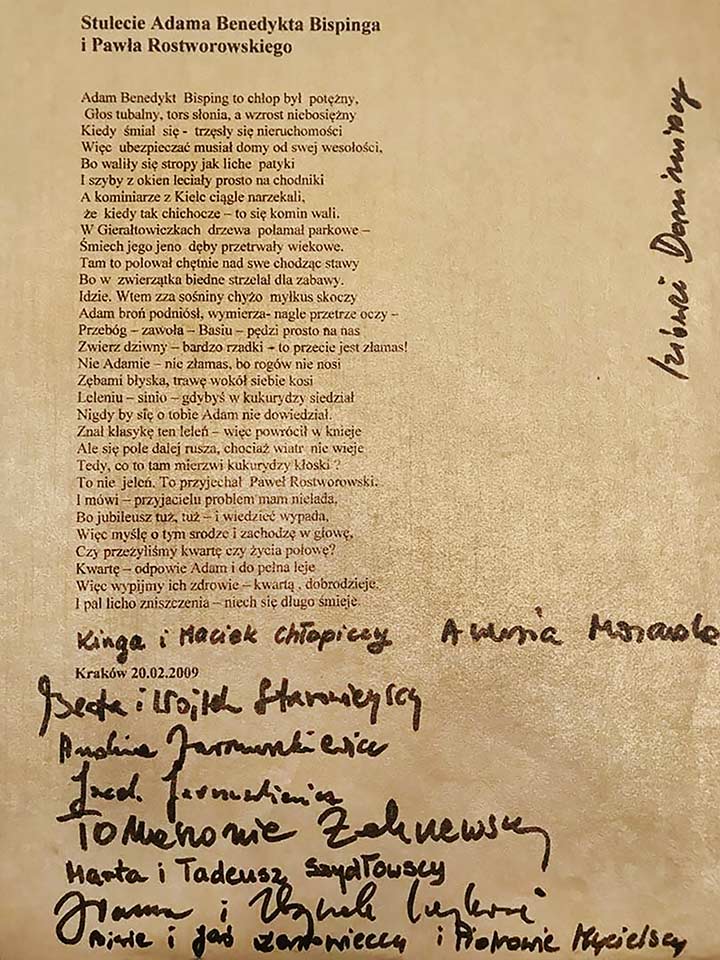 Stulecie Adama Benedykta Bispinga
i Pawła Rostworowskiego
Adam Benedykt Bisping to chłop był potężny,
Głos tubalny, tors słonia, a wzrost niebosiężny
Kiedy śmiał się - trzęsły się nieruchomości
Więc ubezpieczać musiał domy od swej wesołości,
Bo waliły się stropy jak liche patyki
I szyby z okien leciały prosto na chodniki
A kominiarze z Kielc ciągle narzekali,
że kiedy tak chichocze – to się komin wali.
W Gierałtowiczkach drzewa połamał parkowe –
Śmiech jego jeno dęby przetrwały wiekowe.
Tam to polował chętnie nad swe chodząc stawy
Bo w zwierzątka biedne strzelał dla zabawy.
Idzie. Wtem zza sośniny chyżo myłkus skoczy
Adam broń podniósł, wymierza- nagle przetrze oczy –
Przebóg – zawoła – Basiu – pędzi prosto na nas
Zwierz dziwny – bardzo rzadki – to przecie jest złamas!
Nie Adamie – nie złamas, bo rogów nie nosi
Zębami błyska, trawę wokół siebie kosi
Leleniu – sinio – gdybyś w kukurydzy siedział
Nigdy by się o tobie Adam nie dowiedział.
Znał klasykę ten leleń – więc powrócił w knieje
Ale się pole dalej rusza, chociaż wiatr nie wieje
Tedy, co to tam mierzwi kukurydzy kłoski ?
To nie jeleń. To przyjechał Paweł Rostworowski.
I mówi – przyjacielu problem mam nielada,
Bo jubileusz tuż, tuż – i wiedzieć wypada,
Więc myślę o tym srodze i zachodzę w głowę,
Czy przeżyliśmy kwartę czy życia połowę?
Kwartę – odpowie Adam i do pełna leje
Więc wypijmy ich zdrowie – kwartą , dobrodzieje.
I pal licho zniszczenia – niech się długo śmieje.
Kinga i Maciek Chłapiccy
Kraków 20.02.2009
Beata i Wojtek Starowieyscy
Jarnuszkiewicz
Jarnuszkiewicz
Marta i Tadeusz Szydłowscy
i
i Jaś i Piotrowie Mycielscy